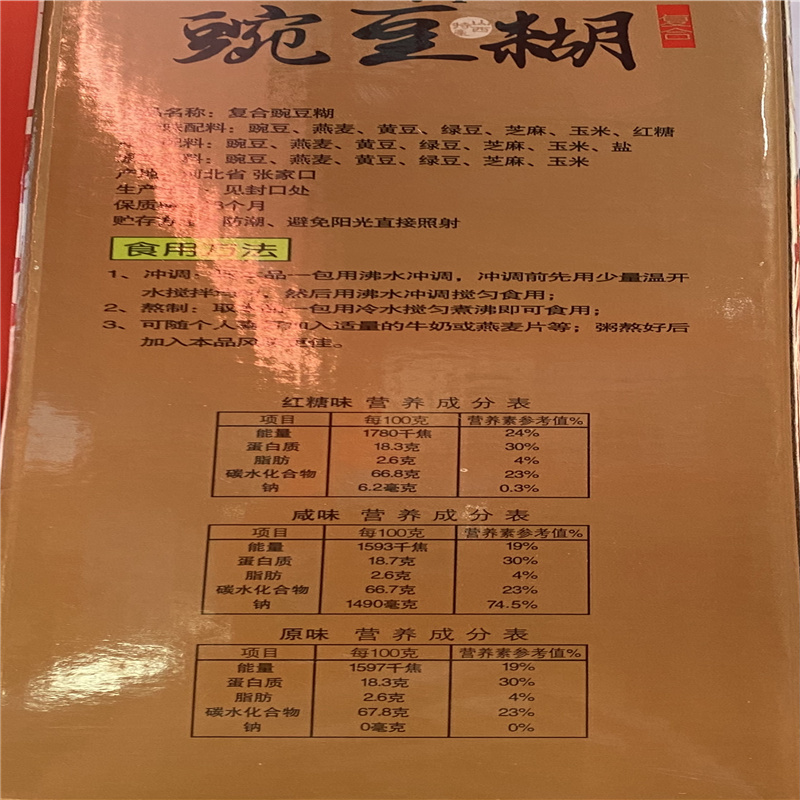 豌豆糊
山西特产
复合
品名称：复合豌豆糊
味配料：豌豆、燕麦、黄豆、绿豆、芝麻、玉米、红糖
配料：豌豆、燕麦、黄豆、绿豆、芝麻、玉米、盐
料：豌豆、燕麦、黄豆、绿豆、芝麻、玉米
产地：河北省 张家口
生产 ：见封口处
保质 个月
贮存 防潮、避免阳光直接照射
食用方法
1、冲调： 品一包用沸水冲调，冲调前先用少量温开
水搅拌 ，然后用沸水冲调搅匀食用；
2、熬制：取 一包用冷水搅匀煮沸即可食用；
3、可随个人 加入适量的牛奶或燕麦片等；粥熬好后
加入本品风 佳。
红糖味 营养成分表
项目 每100克 营养素参考值%
能量 1780千焦 24%
蛋白质 18.3克 30%
脂肪 2.6克 4%
碳水化合物 66.8克 23%
钠 6.2毫克 0.3%
咸味 营养成分表
项目 每100克 营养素参考值%
能量 1593千焦 19%
蛋白质 18.7克 30%
脂肪 2.6克 4%
碳水化合物 66.7克 23%
钠 1490毫克 74.5%
原味 营养成分表
项目 每100克 营养素参考值%
能量 1597千焦 19%
蛋白质 18.3克 30%
脂肪 2.6克 4%
碳水化合物 67.8克 23%
钠 0毫克 0%